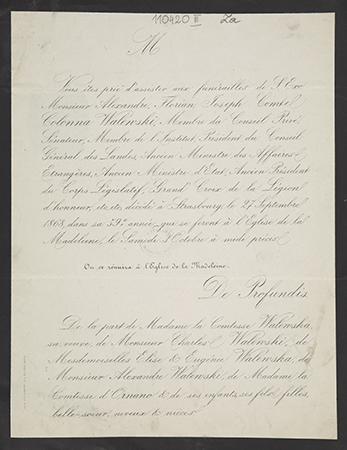 110420 III Za
M
Vous êtes prié d'assister aux funérailles de S. Exce
Monsieur Alexandre, Florian Joseph Comte
Colonna Walewski, Membre du Conseil Privé,
Sénateur, Membre de l'Institut, Président du Conseil
Général des Landes, Ancien Ministre des Affaires
Etrangères, Ancien Ministre d'Etat, Ancien Président
du Corps Législatif, Grand' Croix de la Légion
d'honneur, etc. etc. décédé à Strasbourg, le 27 Septembre
1868, dans sa 59e année, qui se feront à l'Eglise de la
Madeleine, le Samedi 3 Octobre à midi précis.
On se réunira à l'Eglise de la Madeleine.
De Profundis
De la part de Madame la Comtesse Walewska,
sa veuve, de Monsieur Charles Walewski, de
Mesdemoiselles Elise & Eugénie Walewska, de
Monsieur Alexandre Walewski, de Madame la
Comtesse d'Ornano & de ses enfants, ses fils, filles,
belle-sœur, neveux & nièces.